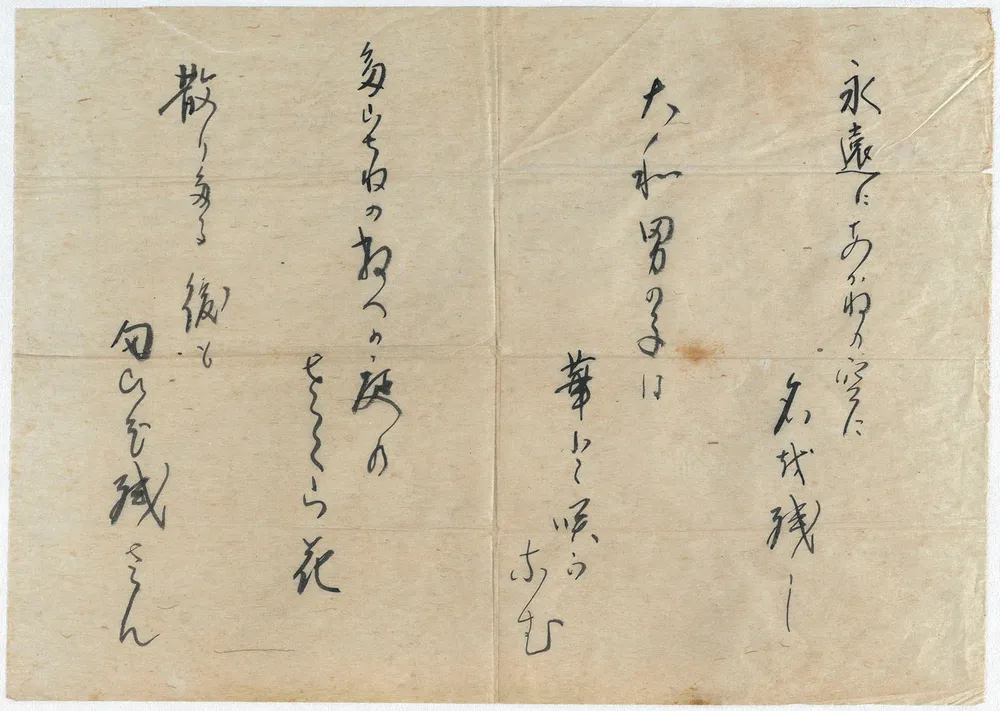 永遠にあかねの空に
名を残し
大和男の子は
華と咲か
なむ
たらちねの教への庭の
さくら花
散りたる後も
匂ひを残さん